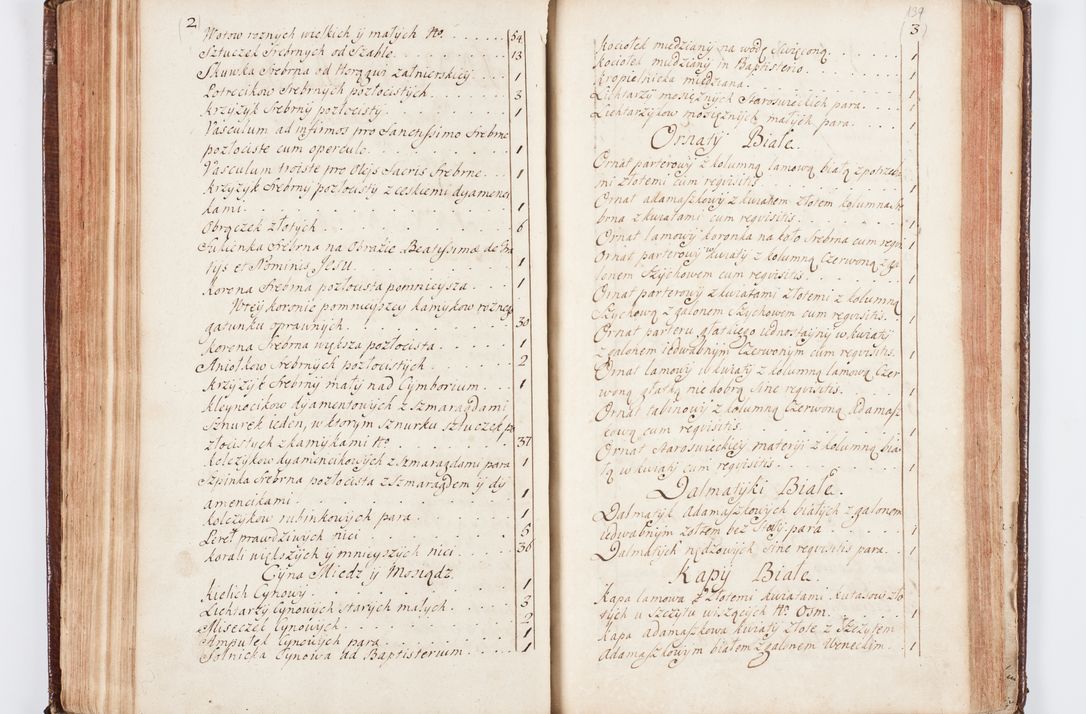 2
Wotow roznych wielkich ÿ małych No. 54
Sztuczek Srebrnych od Szable. 13
Skuwka Srebrna od 1
Potrecikow Srebrnych pozłocistych. 3
Krzyzyk Srebrny pozłocisty. 1
Vasculum ad infirmos pro Sanctissimo Srebrne
pozłociste cum operculo. 1
Vasculum troiste pro Olejs Sacris Srebrne. 1
Krzyzyk Srebrny pozłocisty z czeskiemi dyamenci
kami. 1
Obrączek złotych. 6
Sukienka Srebrna na Obrazie Beatissimæ de
et Nominis Jesu. 1
Korona Srebrna pozłocista pomnieysza. 1
W tey koronie pomnieyszey kamykow roznego
gatunku oprawnych. 30
Korona Srebrna większa pozłocista. 1
Aniołkow Srebrnych pozłocistych. 2
Krzyzyk Srebrny mały nad Cymborium. 1
Kleynocikow dyamentowych z Szmaragdami
Sznurek ieden, w ktorym sznurku sztuczek po
złocistych z kamykami No 37
Kolczykow dyamencikowych z Szmaragdami para 1
Szpinka Srebrna pozłocista z Szmaragdem ÿ dy
amencikami. 1
Kolczykow rubinkowych para. 1
Pereł prawdziwych nici 5
Korali większych ÿ mnieyszych nici. 36
Cyna Miedz ÿ Mosiądz.
Kielich Cynowy. 1
Lichtarzy Cynowych starych małych. 3
Miseczek Cynowych. 2
Ampułek Cynowych para. 1
Solnicka Cynowa ad Baptisterium. 1
139
3
Kociołek miedziany na wodę Swięconą. 1
Kociołek miedziany in Baptisterio. 1
Kropielnicka miedziana. 1
Lichtarzy mosięznych Staroswieckich para. 1
Lichtarzykow mosięznych małych para. 1
Ornaty Białe.
Ornat parterowy z kolumną lamową białą z potrzeba
mi złotemi cum requisitis. 1
Ornat adamaszkowy z kwiatem złotem kolumna Sre
brna z kwiatami cum requisitis. 1
Ornat lamowy koronka na koło Srebrna cum requi. 1
Ornat parterowy w kwiaty z kolumną Czerwoną z ga
lonem Szychowem cum requisitis. 1
Ornat parterowy z kwiatami złotemi z kolumną
Szychową z galonem Szychowem cum requisitis. 1
Ornat parteru gładkiego iednostayny w kwiaty
z galonem iedwabnym Czerwonym cum requisitis. 1
Ornat lamowy w kwiaty z kolumną lamową Czer
woną gładką nie dobrą Sine requisitis. 1
Ornat tabinowy z kolumną Czerwoną Adamasz
kową cum requisitis. 1
Ornat Staroswieckiey materyi z kolumną bia
łą w kwiaty cum requisitis. 1
Dalmatyki Białe.
Dalmatyk adamaszkowych białych z galonem
iedwabnym zołtem bez Stoły para 1
Dalmatyk nędzowych Sine requisitis para. 1
Kapy Białe.
Kapa lamowa z złotemi kwiatami kutasow zło
tych u Szczytu wiszących No. Osm. 1
Kapa adamaszkowa kwiaty złote z Szczytem
Adamaszkowym białem z galonem Weneckim. 1